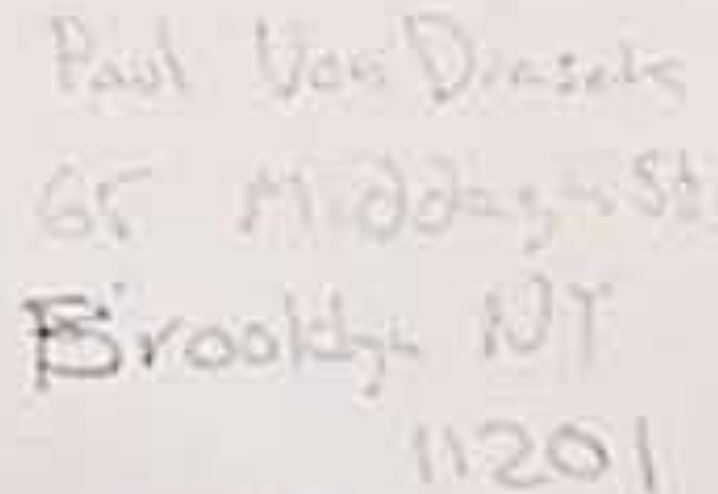 Paul Von
65 Middagh St
Brooklyn NY
11201